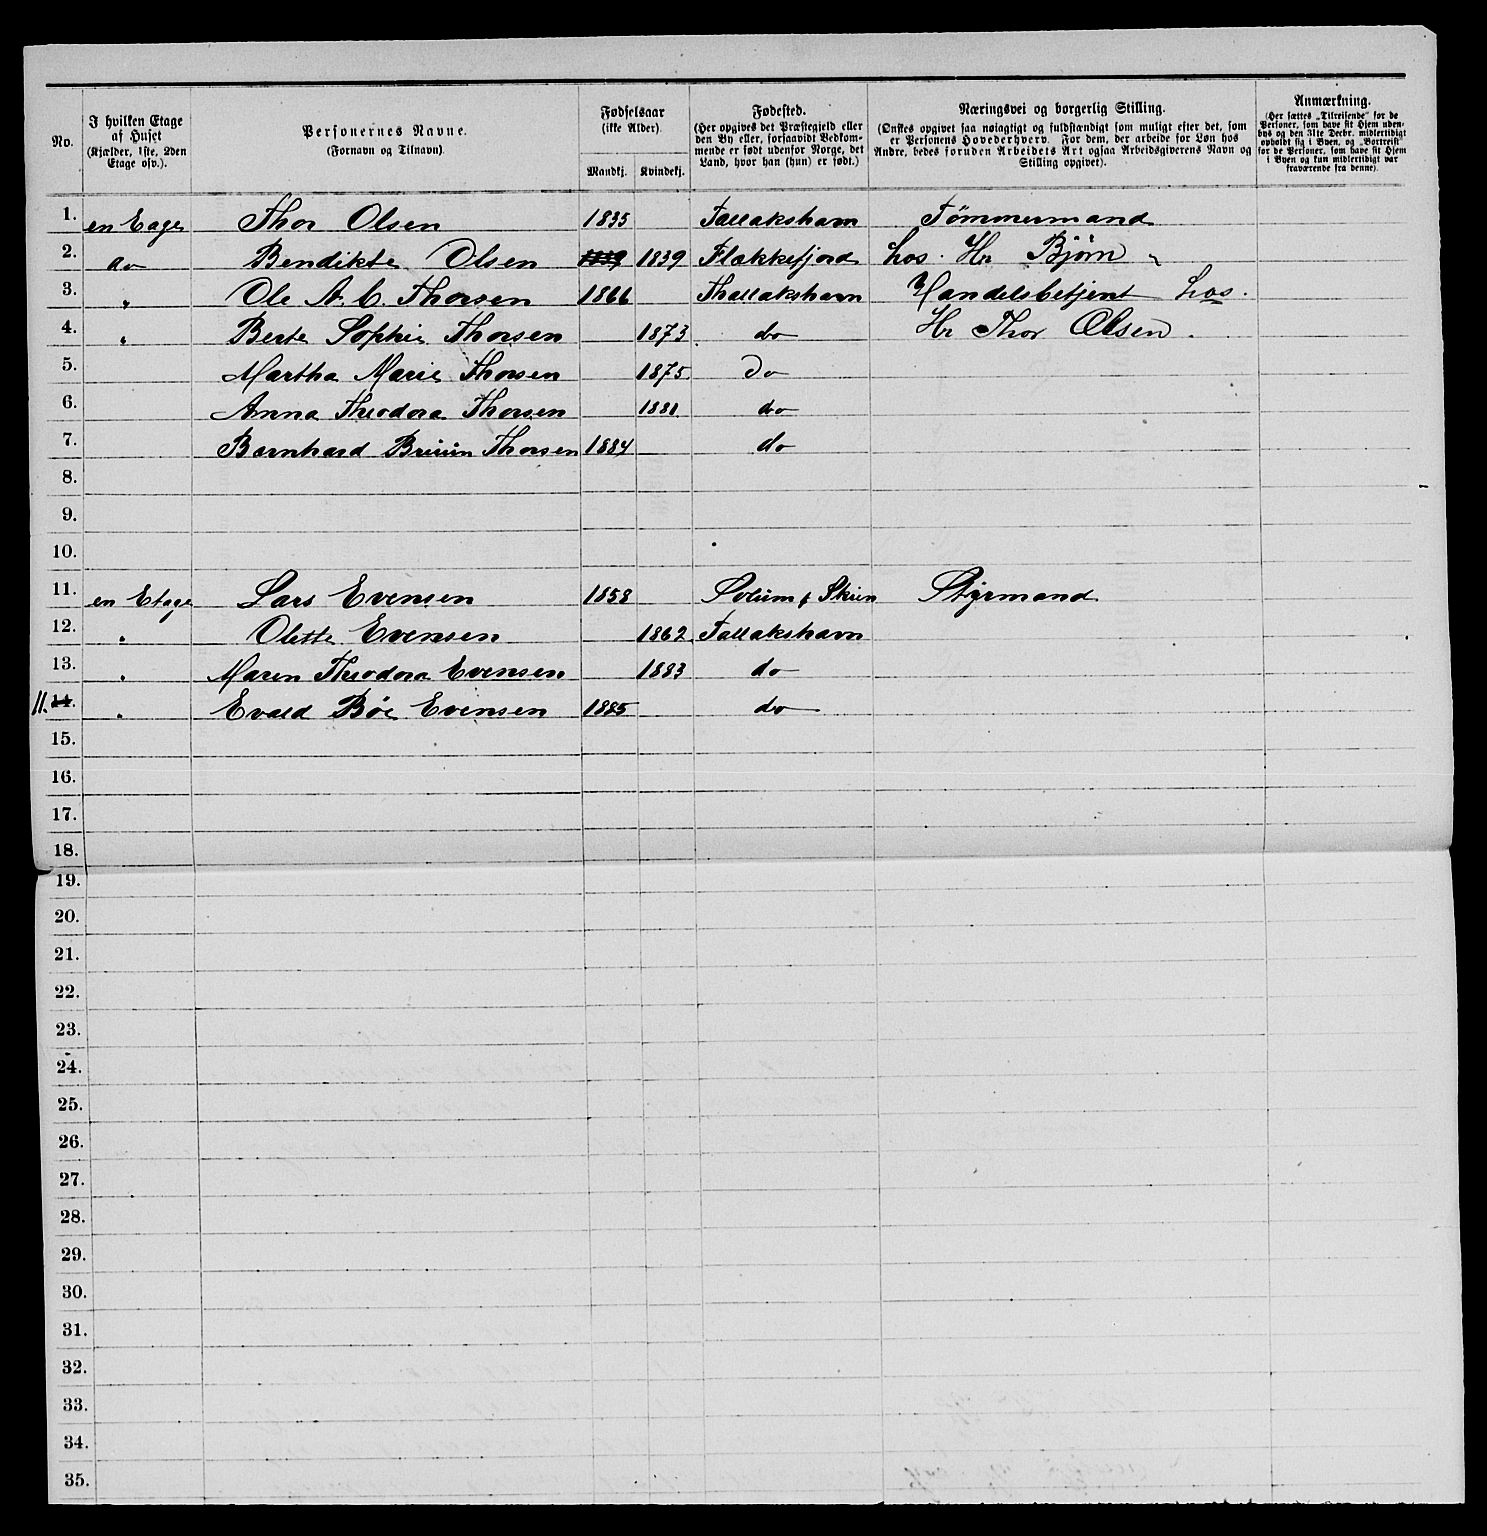 No.
I hvilken Etage
af Huset
(Kjælder, 1ste, 2den
Etage osv.).
Personernes Navne.
(Fornavn og Tilnavn).
Fødselsaar
(ikke Alder).
Mandkj. Kvindekj.
Fødested.
(Her opgives det Præstegjeld eller
den By eller, forsaavidt Vedkom-
mende er født udenfor Norge, det
Land, hvor han (hun) er født.)
Næringsvei og borgerlig Stilling.
(Ønskes opgivet saa nøiagtigt og fuldstændigt som muligt efter det, som
er Personens Hovederhverv. For dem, der arbeide for Løn hos
Andre, bedes foruden Arbeidets Art ogsaa Arbeidsgiverens Navn og
Stilling opgivet).
Anmærkning.
(Her sættes „Tilreisende" for de
Personer, som have sit Hjem uden-
bys og den 31te Decbr. midlertidigt
opholdt sig i Byen, og „Bortreist"
for de Personer, som have sit Hjem
i Byen og kun midlertidigt var
fraværende fra denne).
1. en Eage Thor Olsen 1835 Tallakshavn Tømmermand
2. do Bendikte Olsen 1839 Flækkefjord hos. Hr Bjørn "
3. " Ole A. C. Thorsen 1866 Thallakshavn Handelsbetjent hos.
4. " Berte Sophie Thorsen 1873 do Hr Thor Olsen.
5. Martha Marie Thorsen 1875 do
6. Anna Theodora Thorsen 1881 do
7. Barnhard Bruun Thorsen 1884 do
8.
9.
10.
11. en Etage Lars Evensen 1858 Solum p Skien Styrmand
12. " Olette Evensen 1862 Tallakshavn
13. " Maren Theodora Evensen 1883 do
11. 14. " Evald Bøe Evensen 1885 do
15.
16.
17.
18.
19.
20.
21.
22.
23.
24.
25.
26.
27.
28.
29.
30.
31.
32.
33.
34.
35.